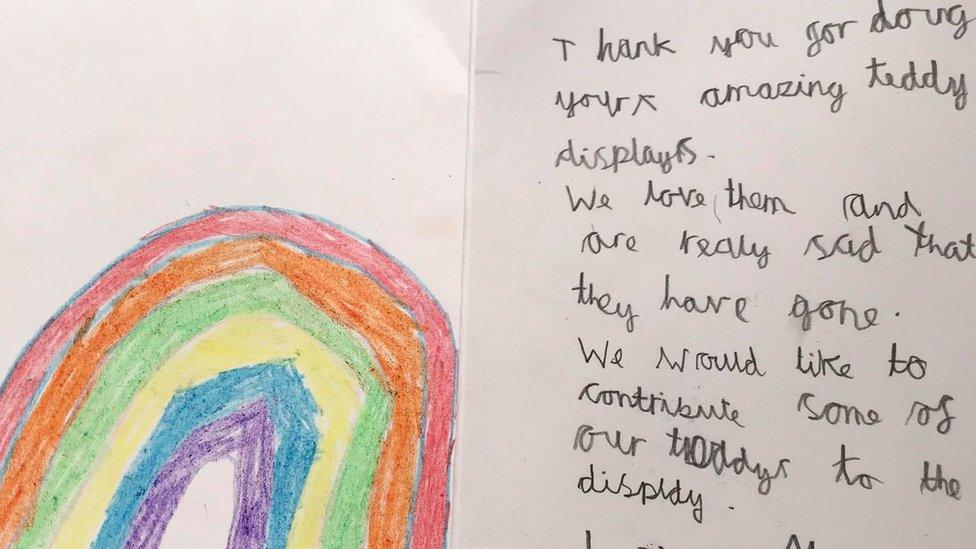 Thank you for doug
your amazing teddy
displays.
We love them and
are realy sad that
they have gone.
We would like to
contribute some of
our teddys to the
display.